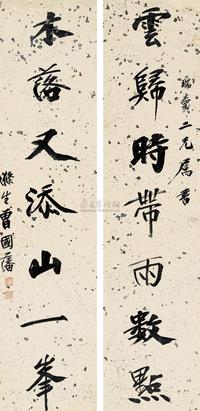 雲歸時帶雨數點
二兄屬書
木落又添山一峯
滌生曾國藩